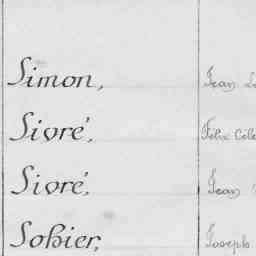 Simon, Jean
Sivré, Félix Céle
Sivré, Jean
Sohier, Joseph